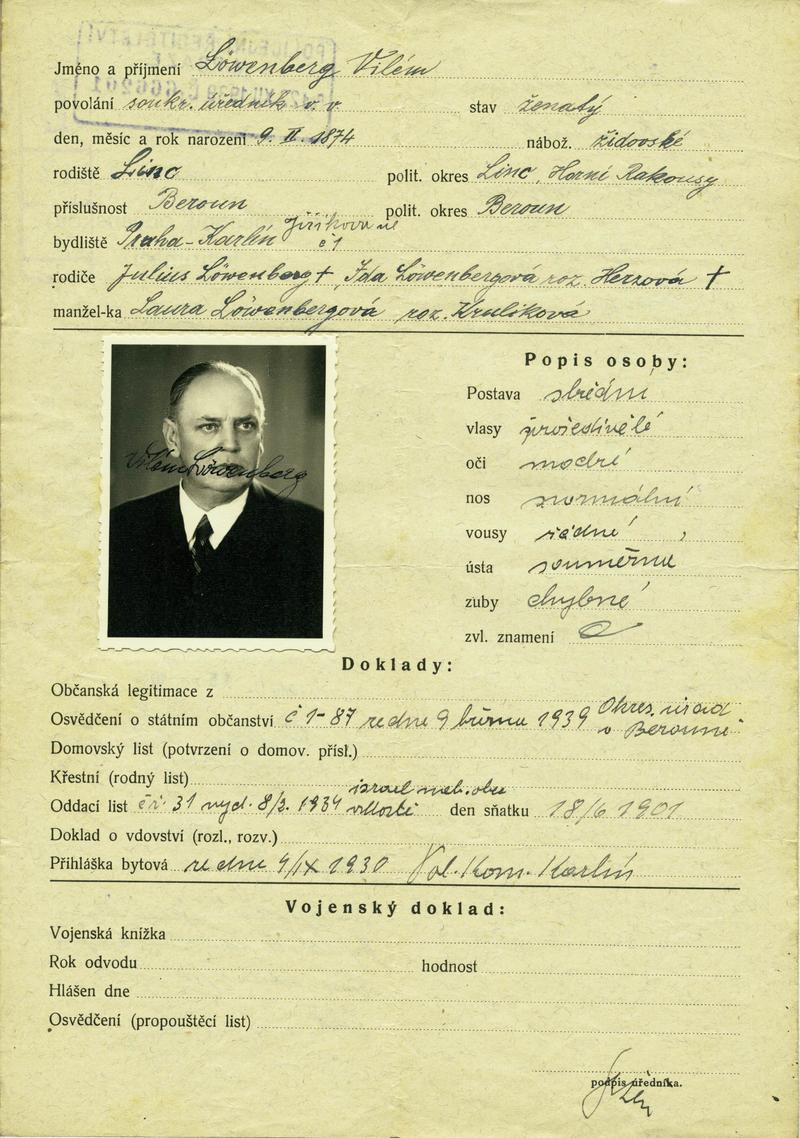 Jméno a příjmení Löwenberg Vilém
povolání soukr. úředník v. v. stav ženatý
den, měsíc a rok narození 9. II. 1874 nábož. židovské
rodiště Linc polit. okres Linc, Horní Rakousy
příslušnost Beroun polit. okres Beroun
bydliště Praha-Karlín Jiříkova ul č 1
rodiče Julius Löwenberg †, Ida Löwenbergová roz. Herzová †
manžel-ka Laura Löwenbergová roz. Krulíková
Popis osoby:
Postava střední
vlasy prošedivělé
oči modré
Vilém Löwenberg
nos normální
vousy žádné
ústa souměrné
zuby chybné
zvl. znamení
Doklady:
Občanská legitimace z
Osvědčení o státním občanství č 1-87 ze dne 9 března 1939 Okres. úřad v Berouně
Domovský list (potvrzení o domov. přísl.)
Křestní (rodný list)
Oddací list 31 vyd. 8/2. 1934 israel. den sňatku 18/6 1901
Doklad o vdovství (rozl., rozv.)
Přihláška bytová ze dne 4/IX 1930 Pol. Kom. Karlín
Vojenský doklad:
Vojenská knížka
Rok odvodu hodnost
Hlášen dne
Osvědčení (propouštěcí list)
podpis úředníka.